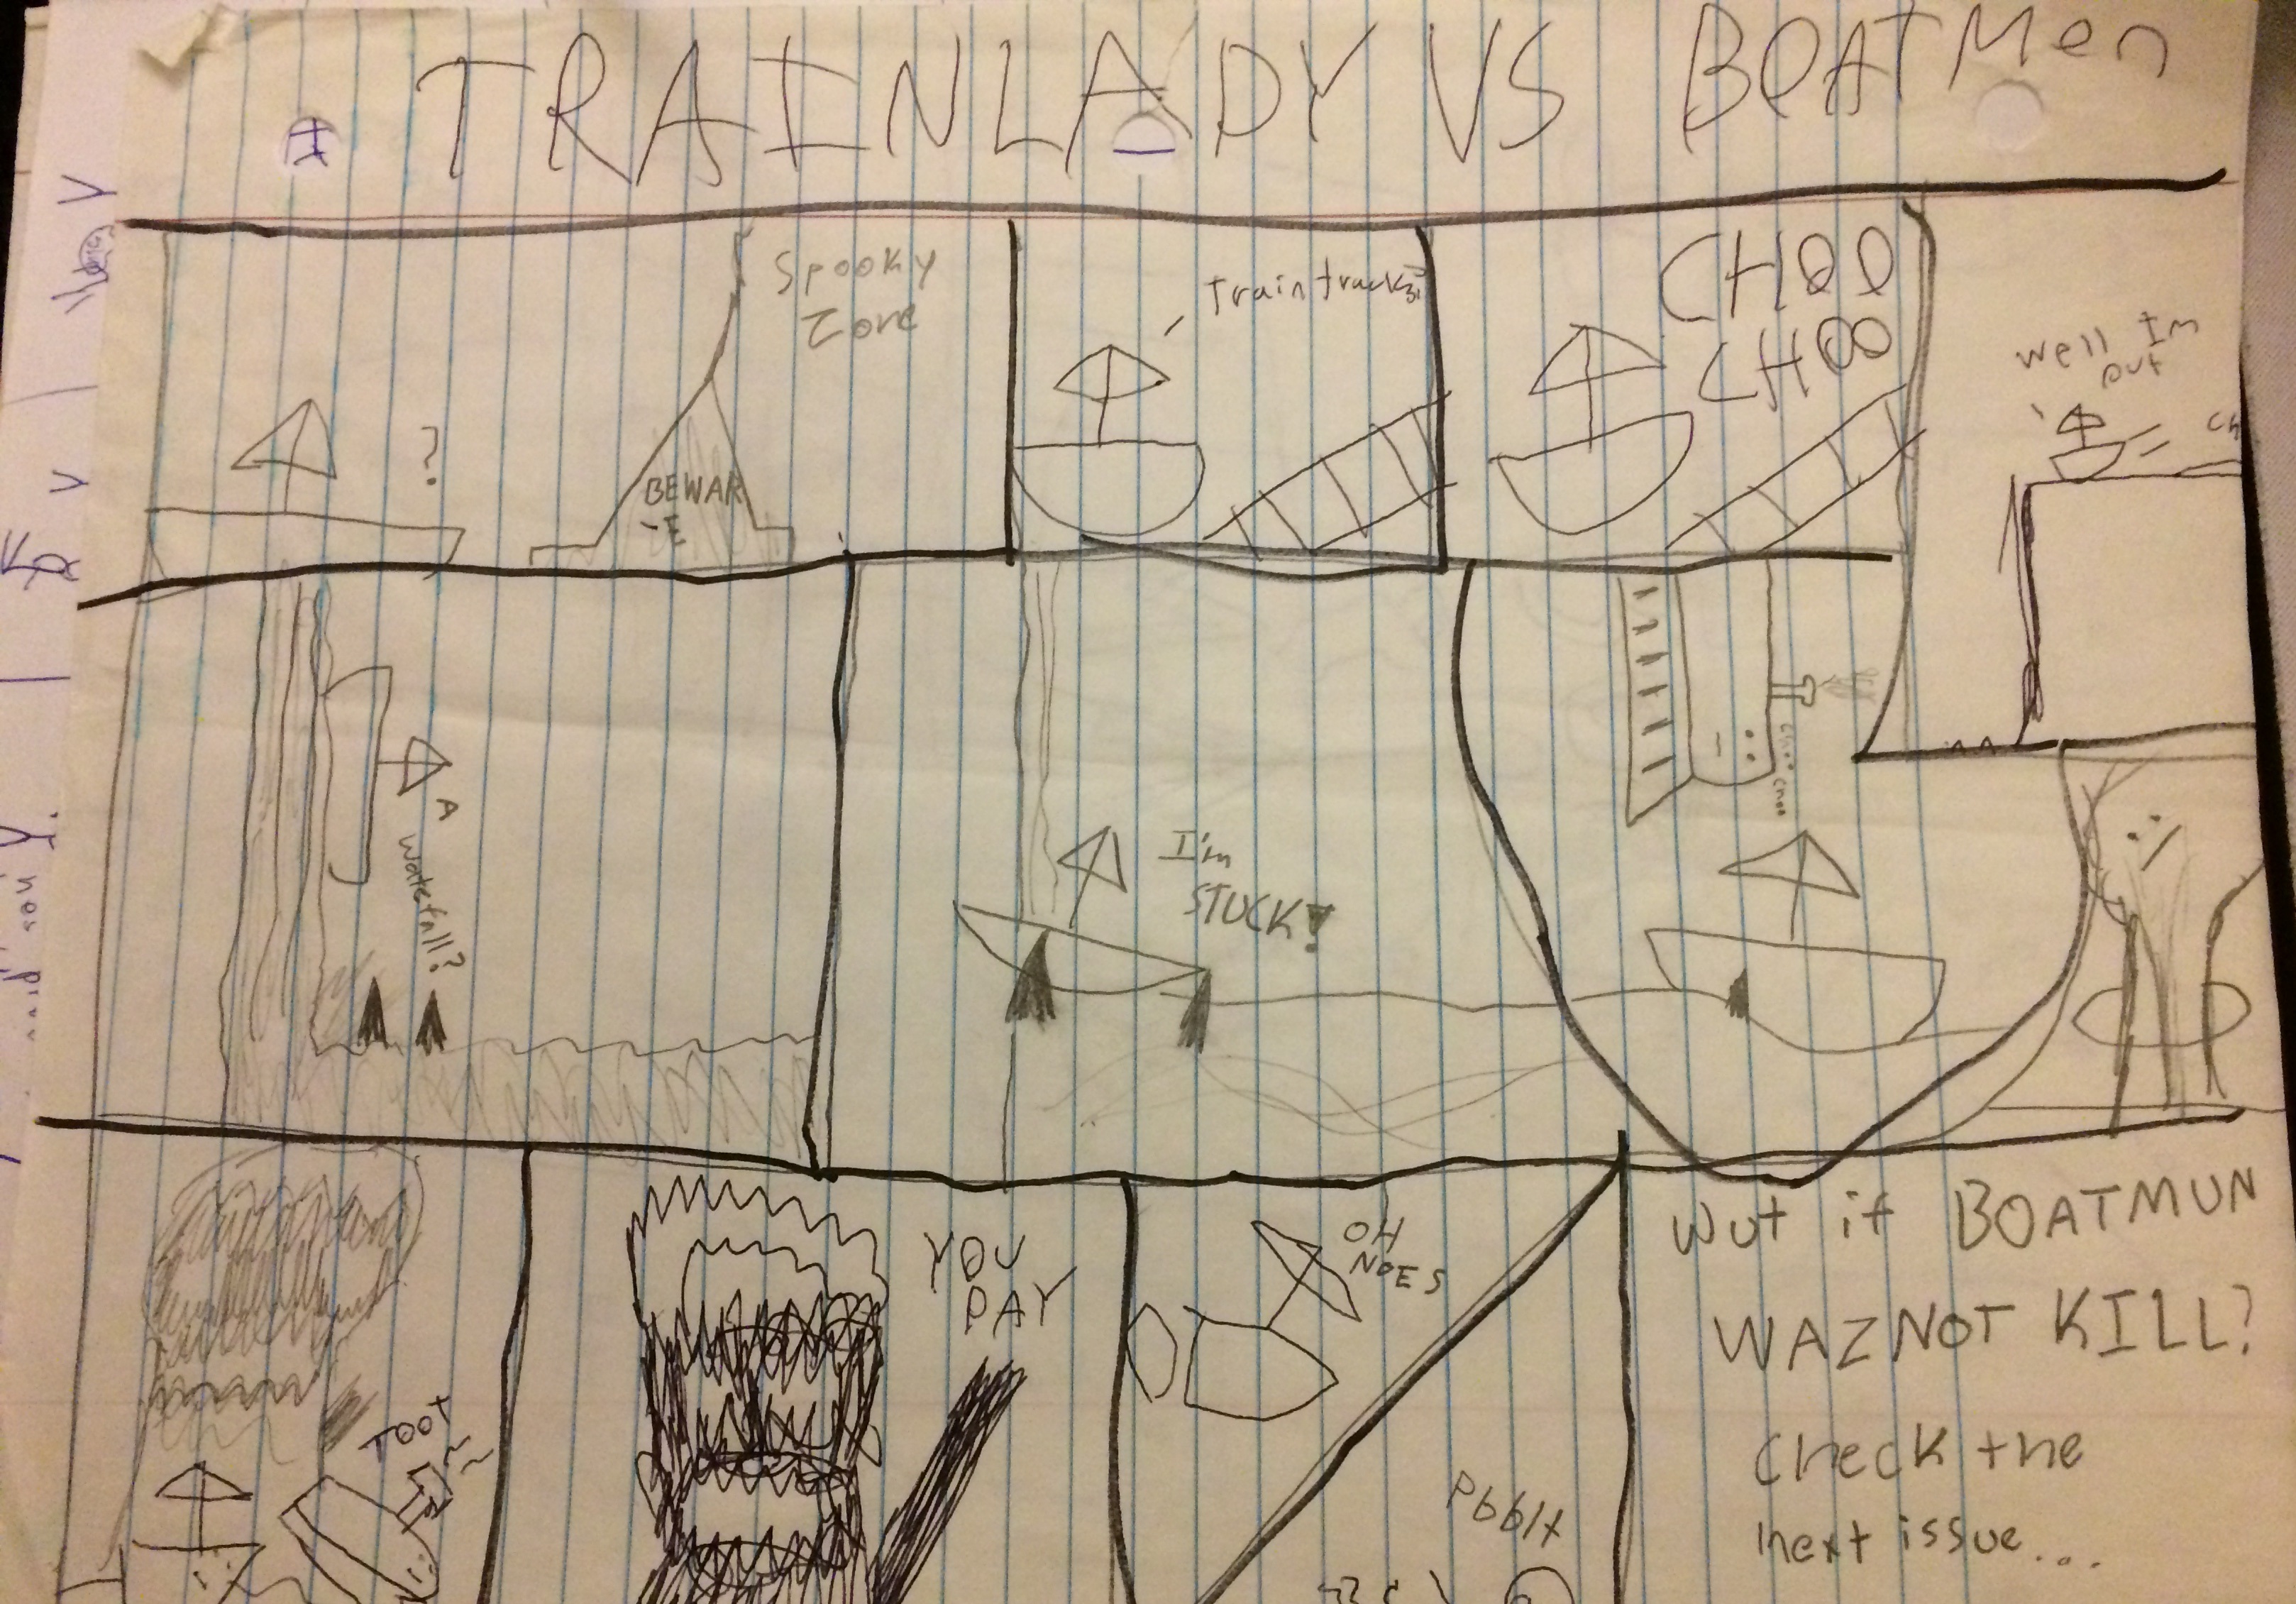 TRAINLADY VS BOATMen
Spooky
Zone
?
BEWAR
-E
Train tracks?
CHOO
CHOO
well Im
out
Ch
A
waterfall?
I'm
STUCK!
Choo Choo
TOOT
YOU
PAY
OH
NOES
Pbblt
Wut if BOATMUN
WAZ NOT KILL?
Check the
next issue...